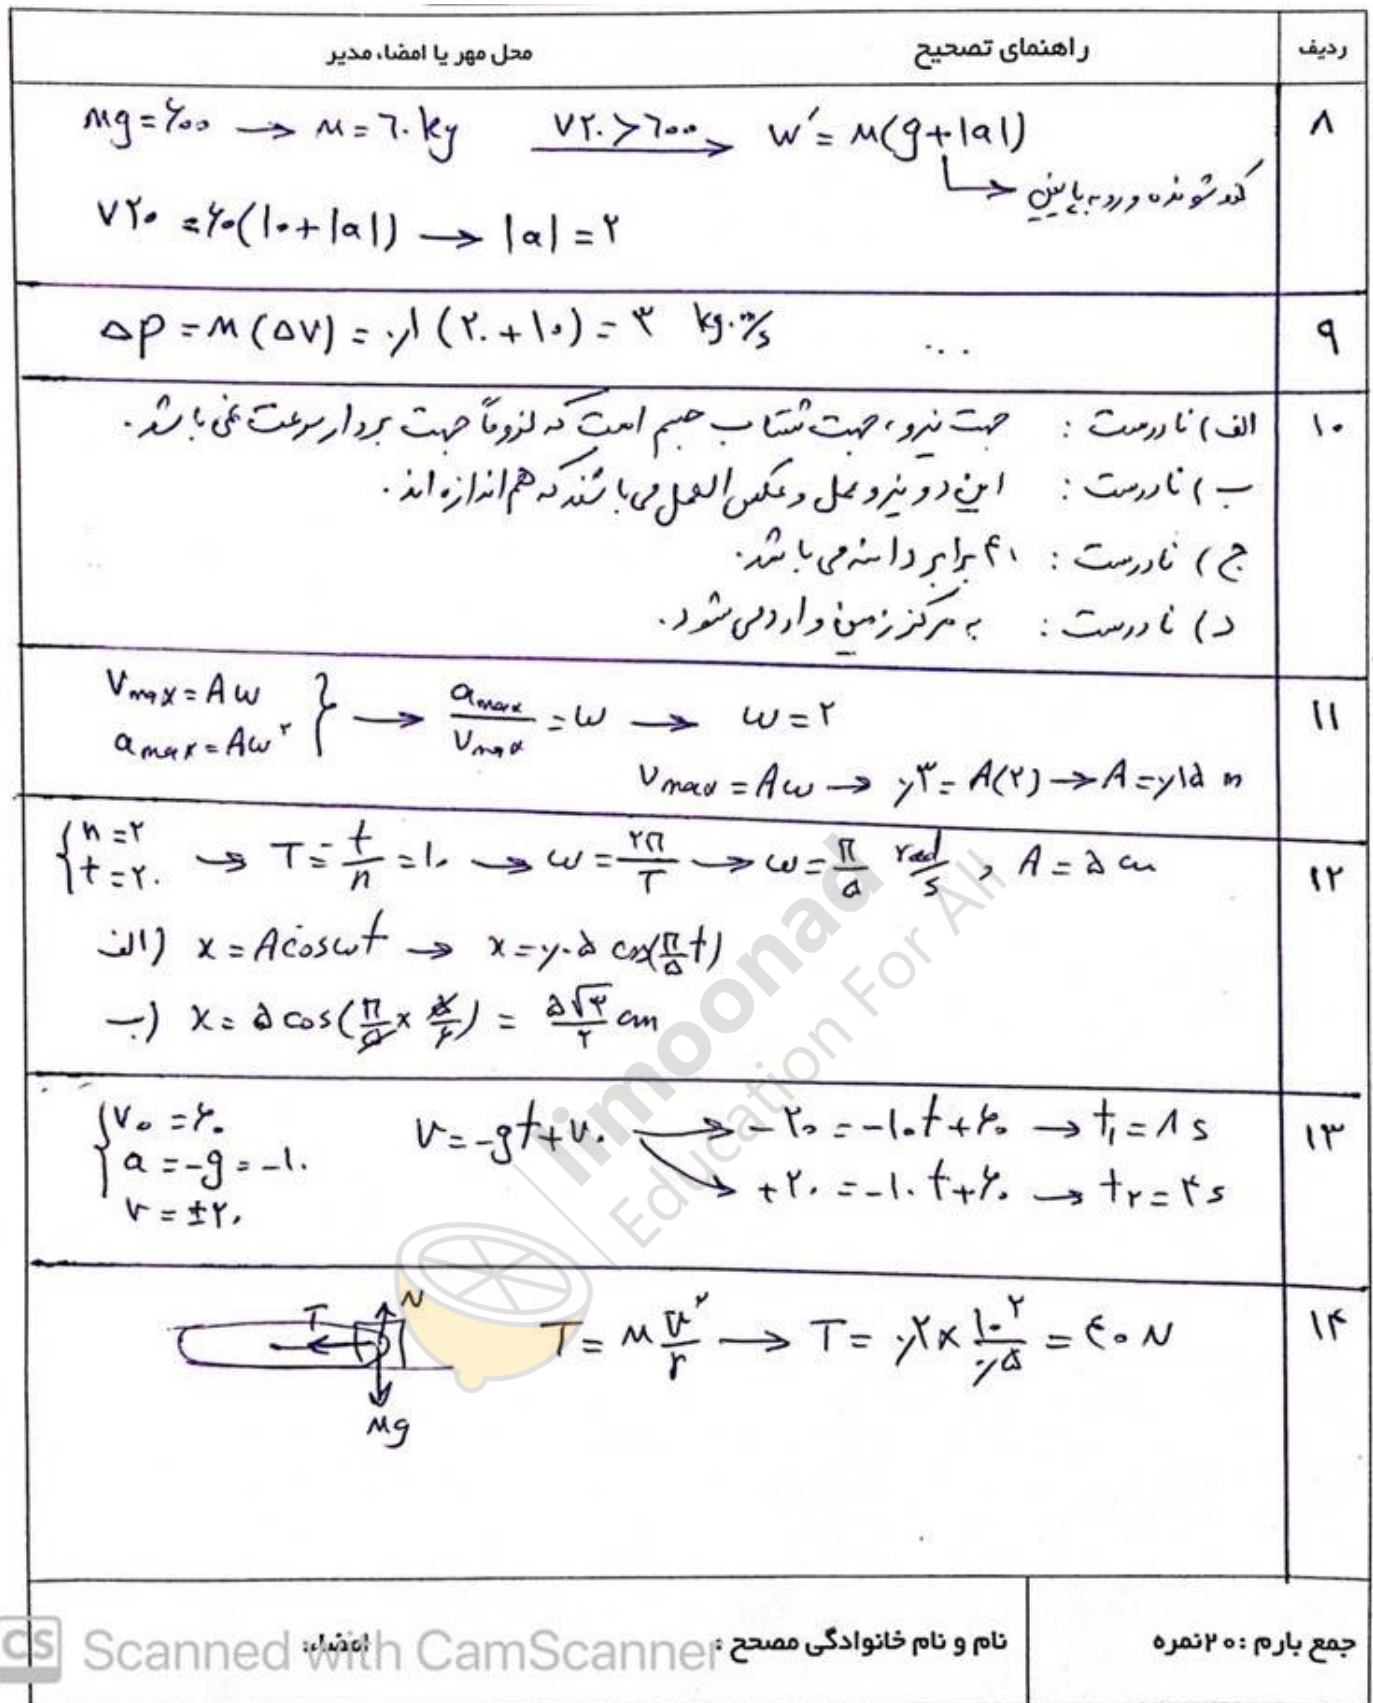 ردیف
راهنمای تصحیح
محل مهر یا امضاء مدیر
۸
mg = ۶۰۰ → m = ۶۰ kg    ۷۲۰ > ۶۰۰ → w' = m(g+|a|)
کند شونده و رو به پایین
۷۲۰ = ۶۰(۱۰+|a|) → |a| = ۲
۹
Δp = m(Δv) = ۰/۱ (۲۰+۱۰) = ۳ kg.m/s ...
۱۰
الف) نادرست : جهت نیرو، جهت شتاب جسم است که لزوماً جهت بردار سرعت نمی باشد.
ب) نادرست : این دو نیرو عمل و عکس العمل می باشند که هم اندازه اند.
ج) نادرست : ۴ برابر دامنه می باشد.
د) نادرست : به مرکز زمین وارد می شود.
۱۱
Vmax = Aω
amax = Aω²  } → amax/Vmax = ω → ω = ۲
Vmax = Aω → ۰/۳ = A(۲) → A = ۰/۱۵ m
۱۲
{ n = ۲
t = ۲۰ → T = t/n = ۱۰ → ω = ۲π/T → ω = π/۵ rad/s , A = ۵ cm
الف) x = A cosωt → x = ۰/۰۵ cos(π/۵ t)
ب) x = ۵ cos(π/۵ × ۵/۶) = ۵√۳/۲ cm
۱۳
{ V₀ = ۶۰
a = -g = -۱۰
v = ±۲۰
v = -gt + v₀ → -۲۰ = -۱۰t + ۶۰ → t₁ = ۸ s
→ +۲۰ = -۱۰t + ۶۰ → t₂ = ۴ s
۱۴
T N
Mg
T = m v²/r → T = ۰/۲ × ۱۰²/۰/۵ = ۴۰ N
limoonad
Education For All
جمع بارم : ۲۰ نمره
نام و نام خانوادگی مصحح :
امضاء:
CS Scanned with CamScanner